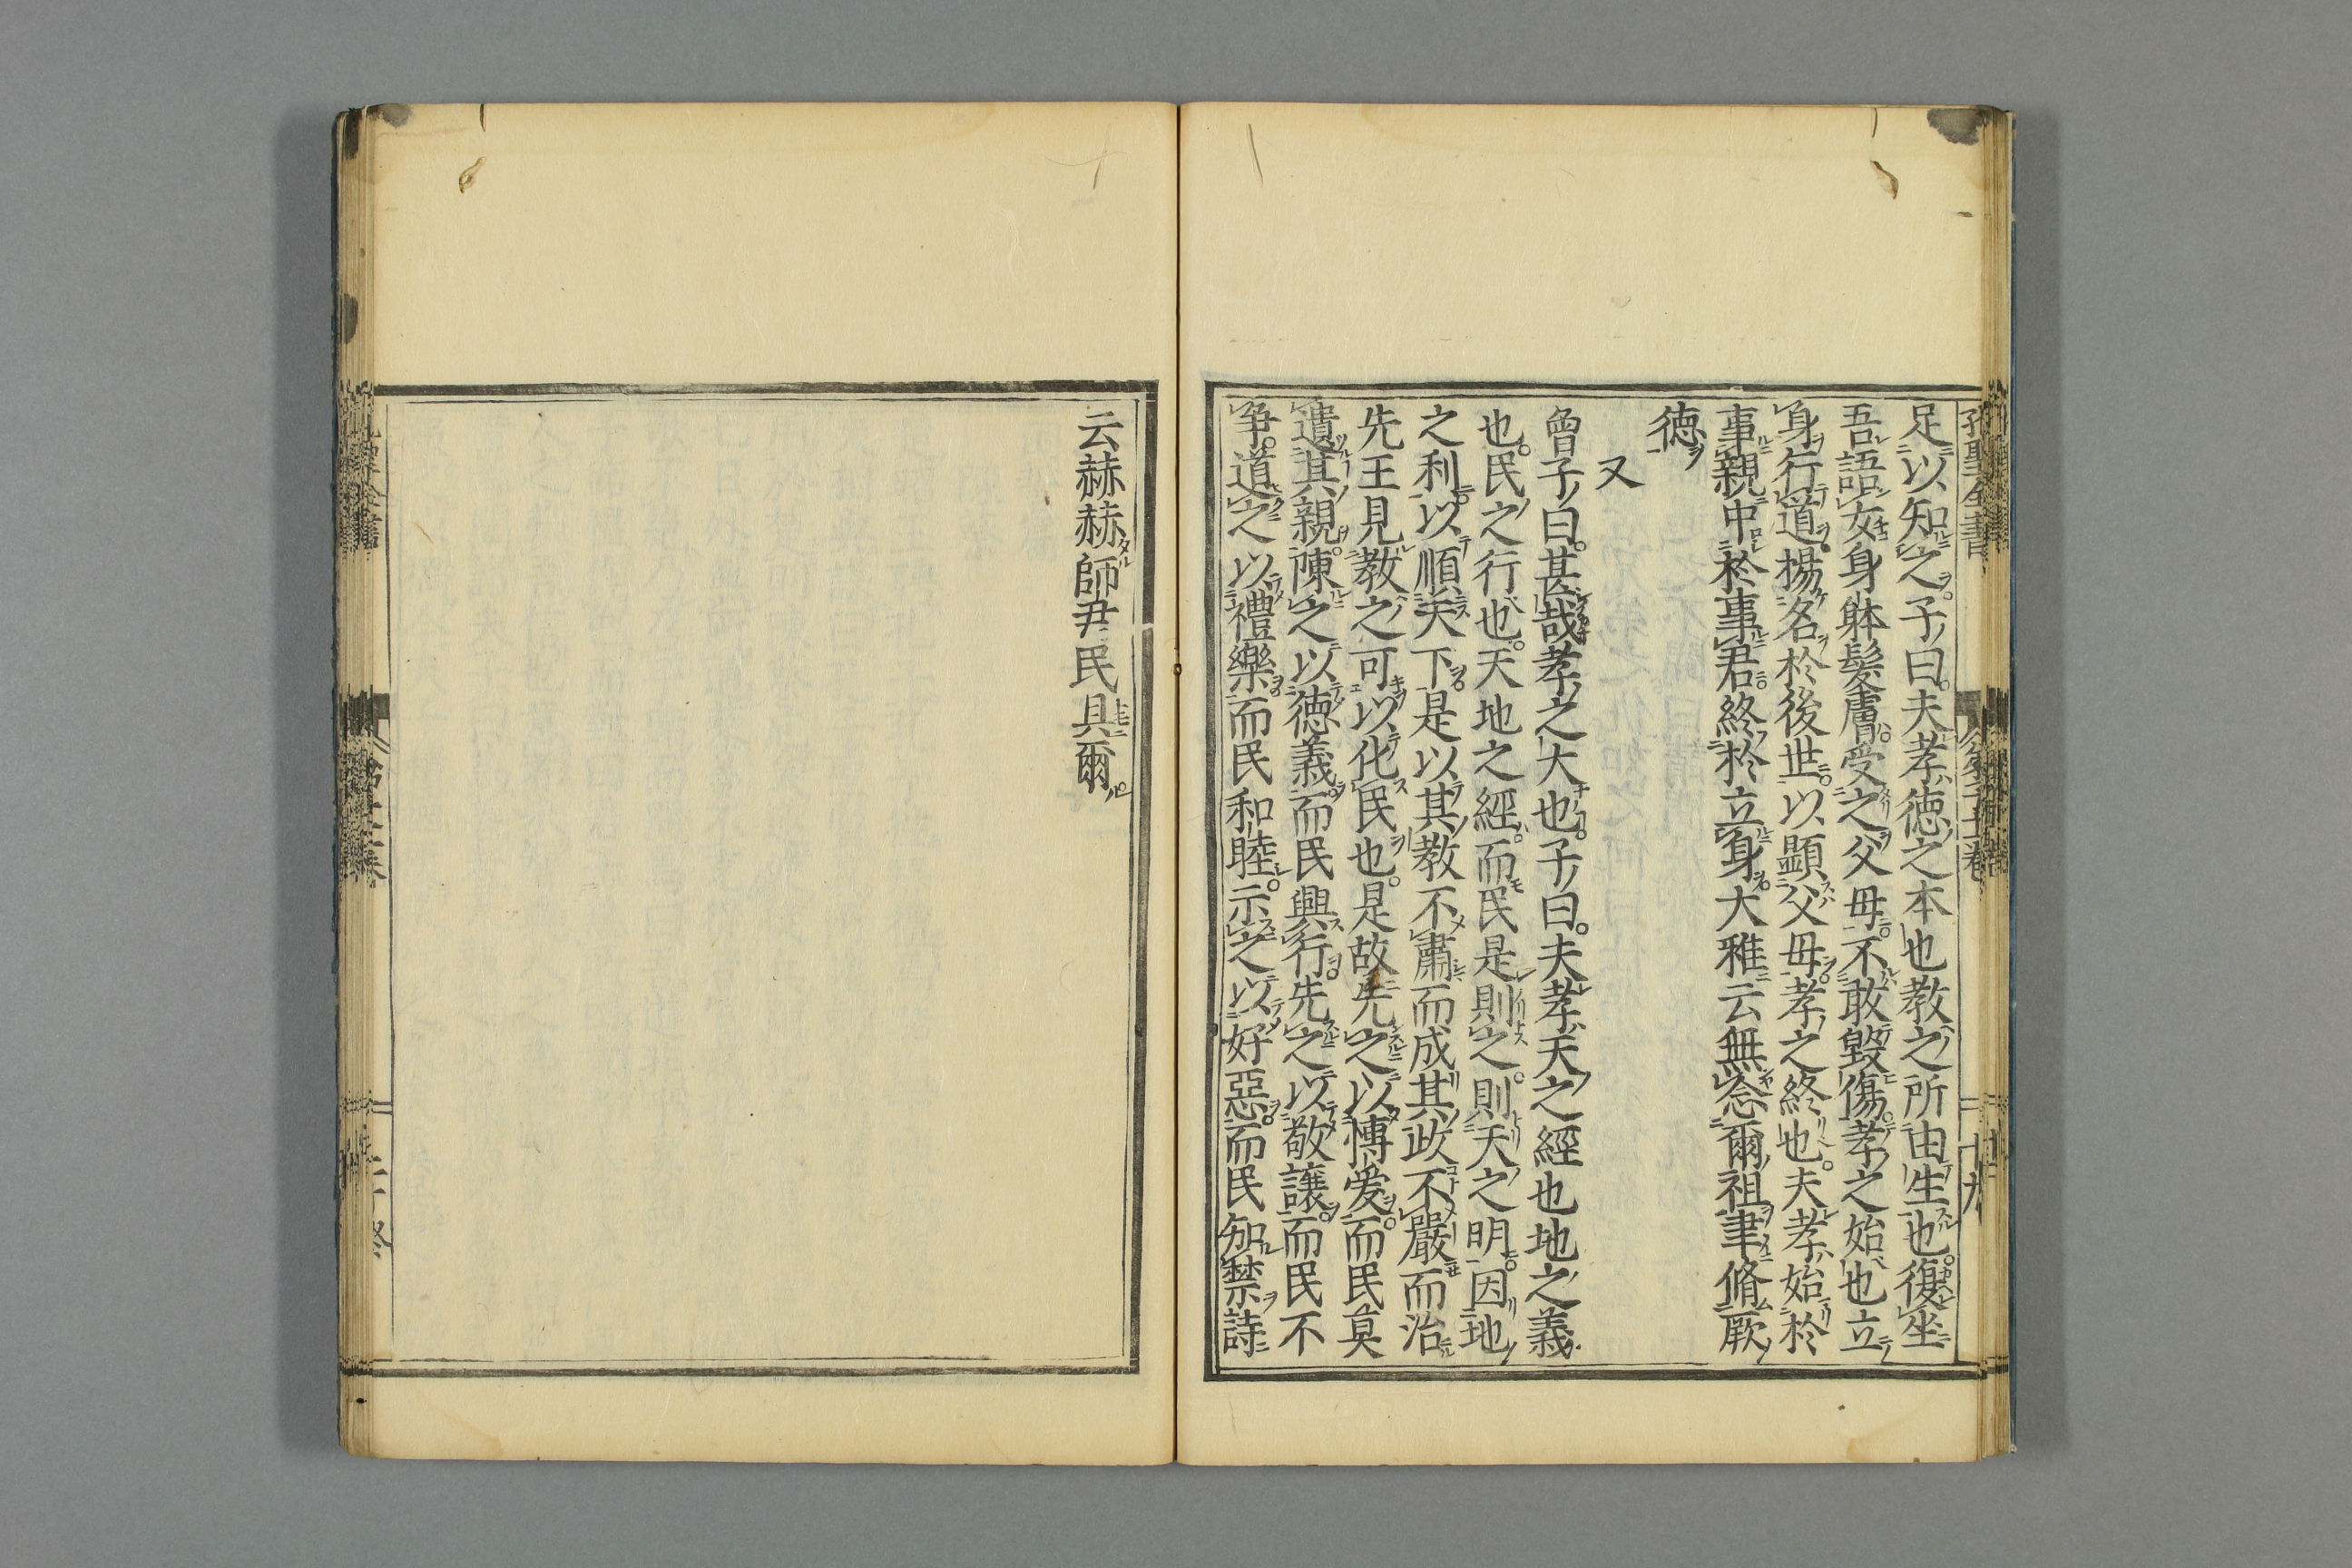 孔聖全書
十九
足以知之。子曰。夫孝德之本也教之所由生也。復坐
吾語女身躰髮膚。受之父母。不敢毀傷。孝之始也立
身行道。揚名於後世。以顯父母。孝之終也。夫孝始於
事親中於事君。終於立身。大雅云無念爾祖聿脩厥
德
又
曾子曰。甚哉孝之大也。子曰。夫孝天之經也地之義
也。民之行也。天地之經。而民是則之。則天之明。因地
之利。以順天下。是以其教不肅而成其政不嚴而治
先王見教之可以化民也。是故先之以博爱。而民莫
遺其親。陳之以德義。而民興行。先之以敬讓。而民不
争。道之以禮樂。而民和睦。示之以好惡。而民知禁詩
云赫赫師尹民具爾